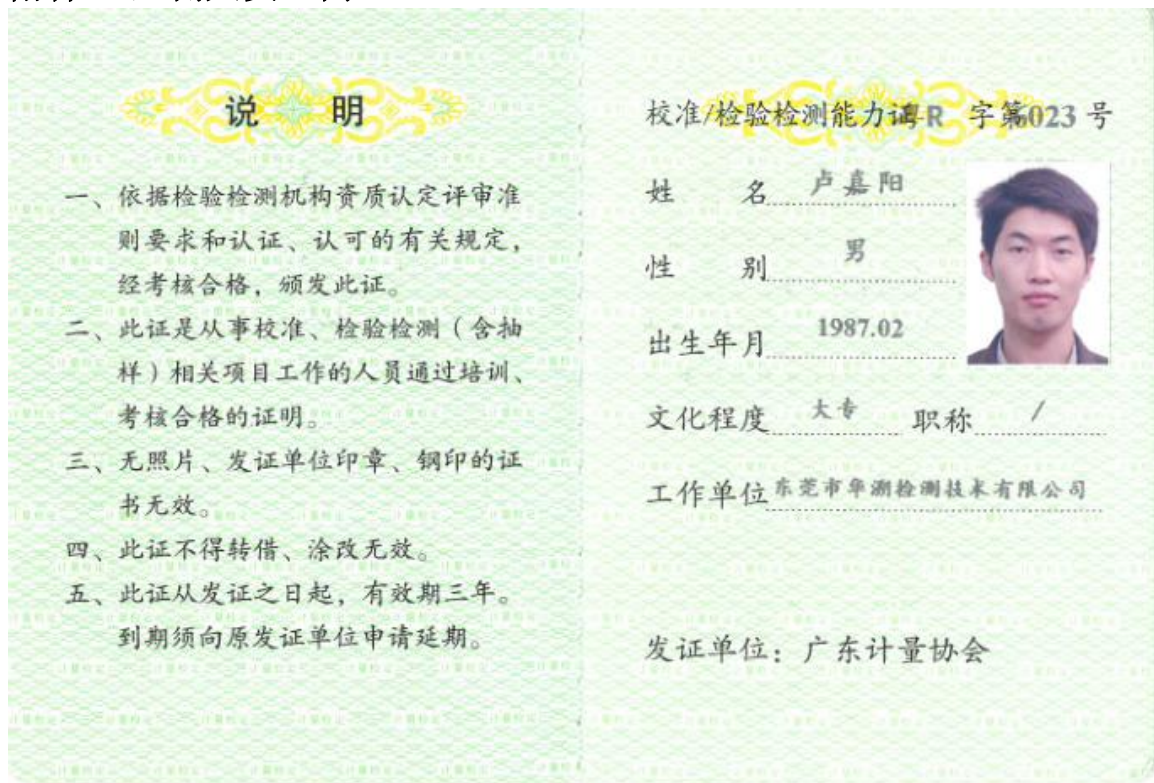 说 明
一、依据检验检测机构资质认定评审准
则要求和认证、认可的有关规定，
经考核合格，颁发此证。
二、此证是从事校准、检验检测（含抽
样）相关项目工作的人员通过培训、
考核合格的证明。
三、无照片、发证单位印章、钢印的证
书无效。
四、此证不得转借、涂改无效。
五、此证从发证之日起，有效期三年。
到期须向原发证单位申请延期。
校准/检验检测能力证粤R 字第6023 号
姓 名 卢嘉阳
性 别 男
出生年月 1987.02
文化程度 大专 职称 /
工作单位 东莞市华溯检测技术有限公司
发证单位：广东计量协会